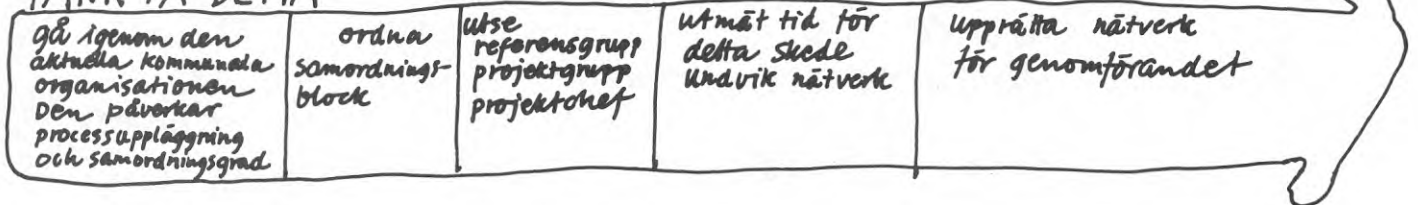 gå igenom den
aktuella kommunala
organisationen
Den påverkar
processuppläggning
och samordningsgrad
ordna
samordnings-
block
utse
referensgrupp
projektgrupp
projektchef
utmät tid för
detta skede
undvik nätverk
upprätta nätverk
för genomförandet